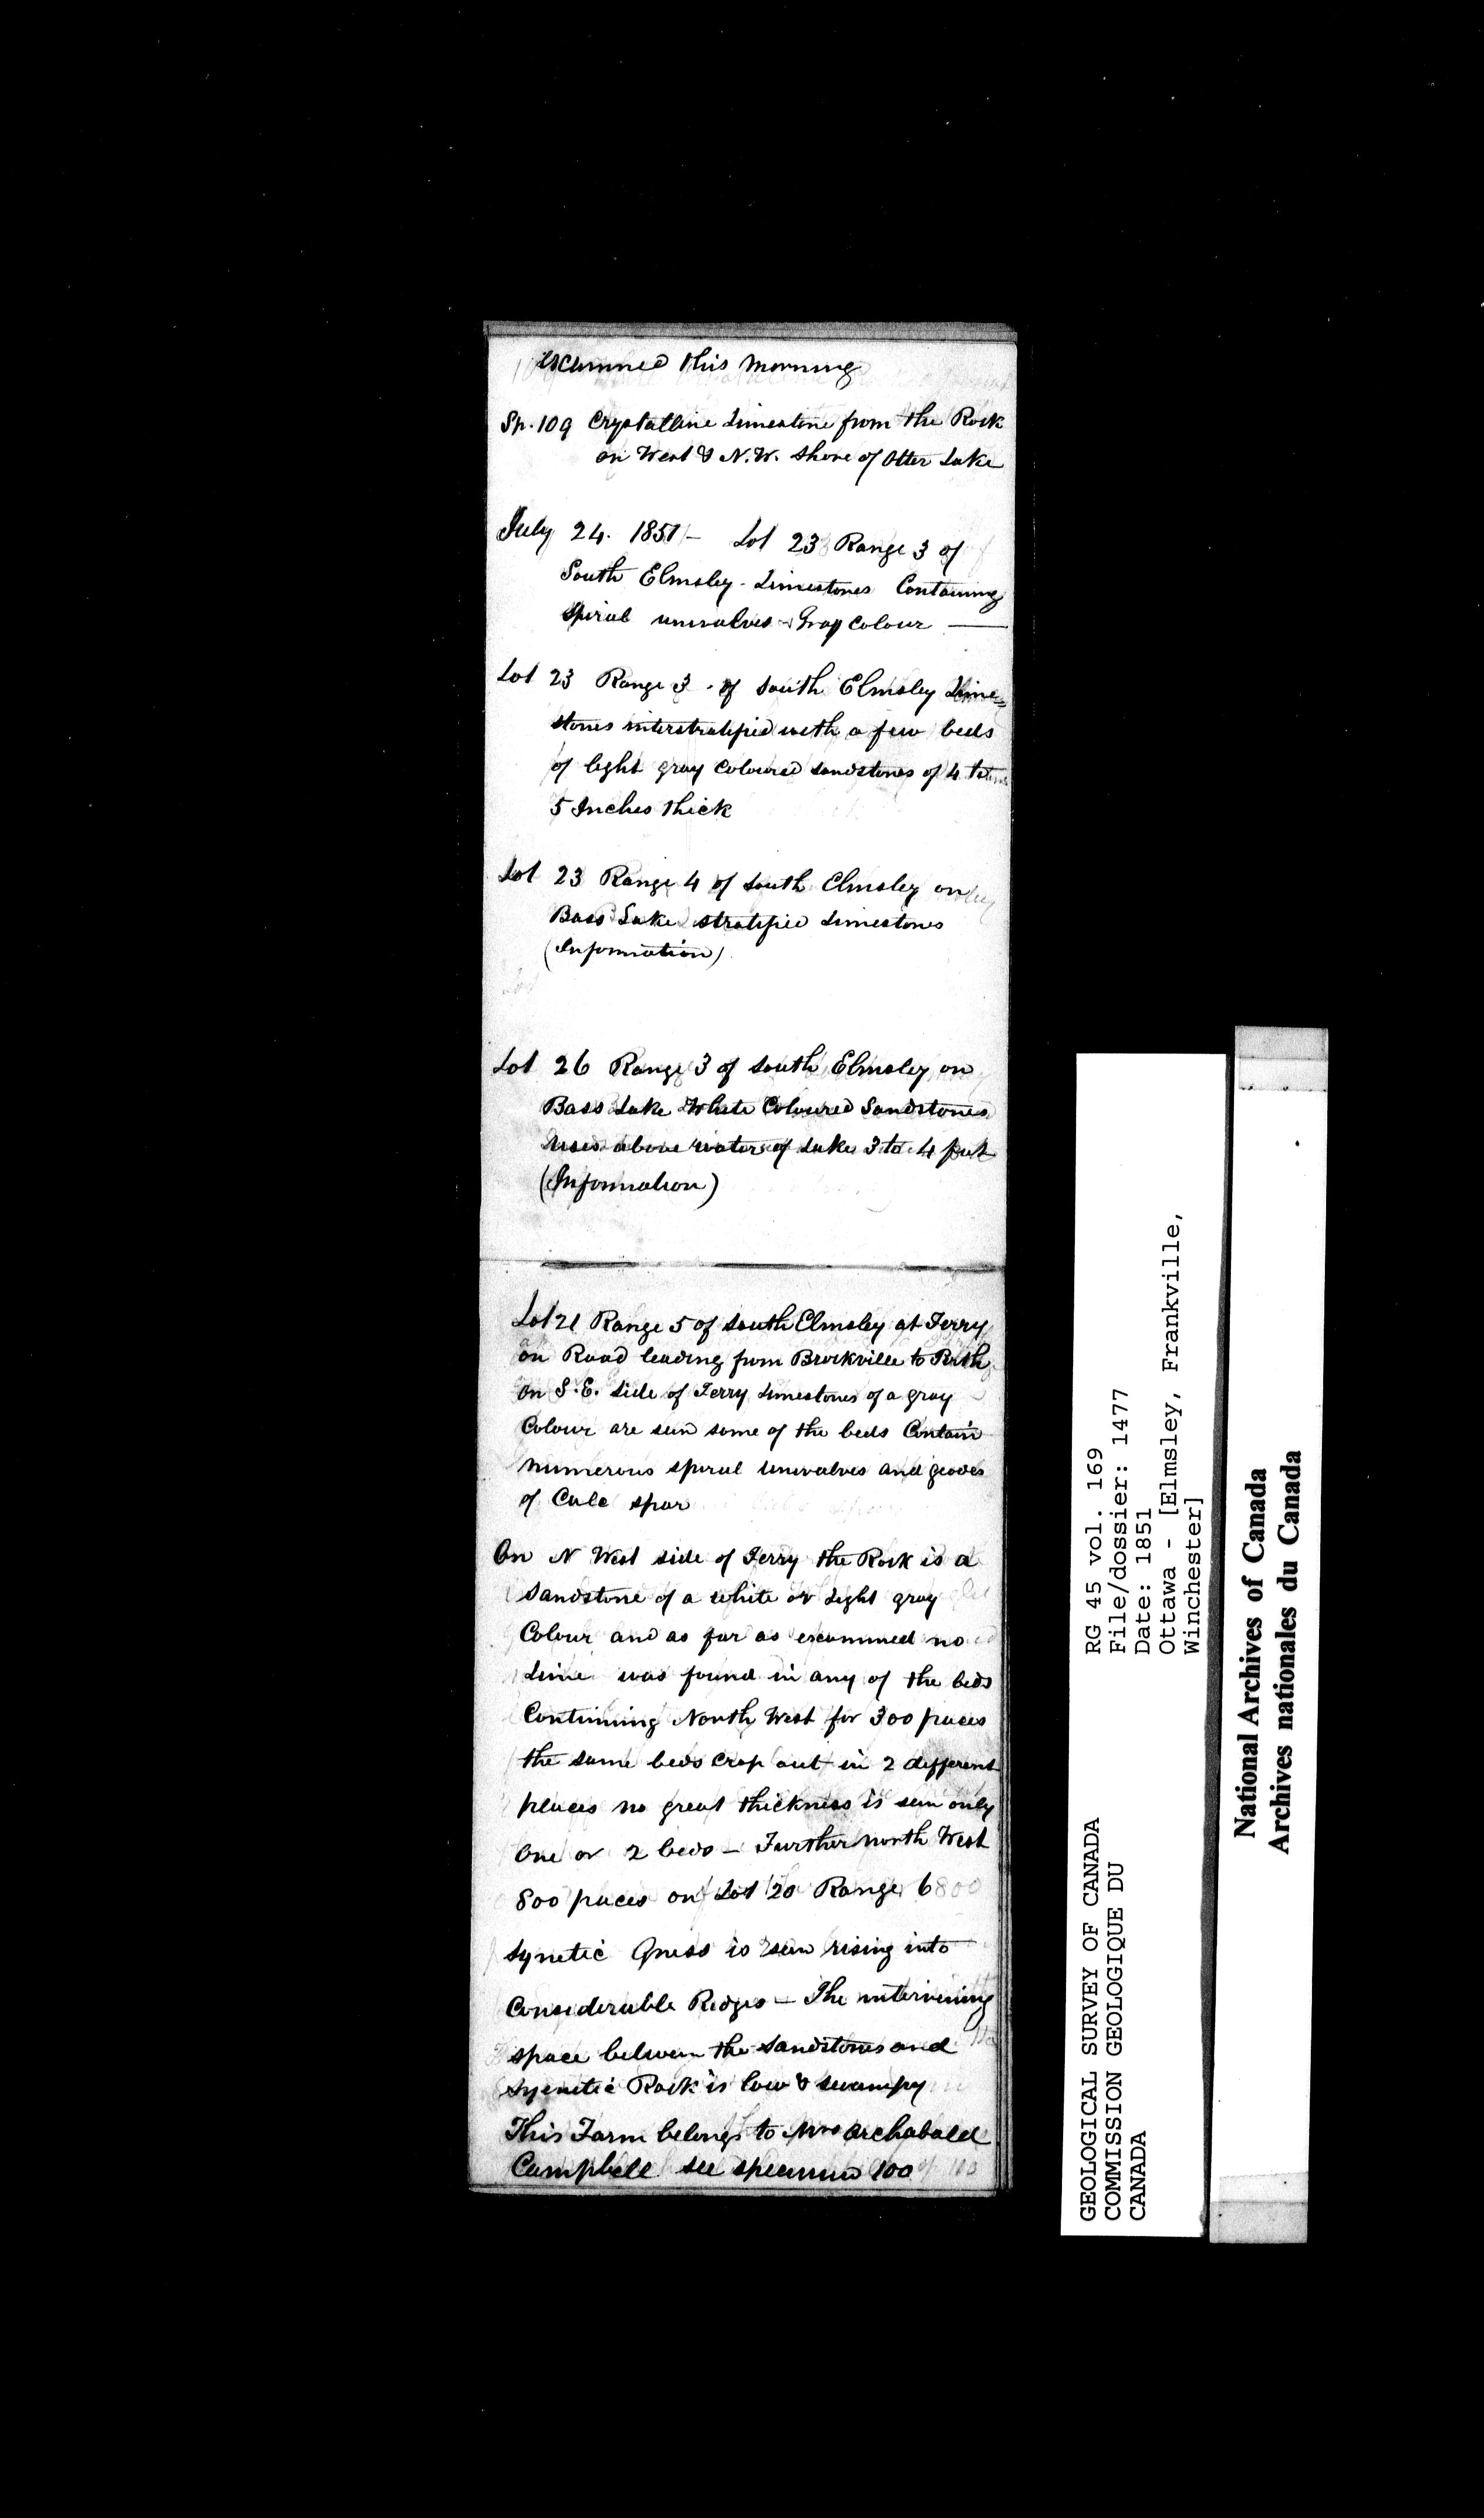 examined this morning
Sp. 109 Crystalline Limestone from the Rock
on West & N.W. shore of Otter Lake
July 24. 1851 - Lot 23 Range 3 of
South Elmsley - Limestones Containing
spiral univalves - Gray Colour —
Lot 23 Range 3 - of South Elmsley Lime=
stones interstratified with a few beds
of light gray Coloured sandstones of 4 to
5 Inches thick
Lot 23 Range 4 of South Elmsley on
Bass Lake stratified Limestones
(Information)
Lot 26 Range 3 of South Elmsley on
Bass Lake White Coloured Sandstones
rises above water of Lake 3 to 4 feet
(Information)
Lot 21 Range 5 of South Elmsley at Ferry
on Road leading from Brockville to Perth
on S.E. side of Ferry Limestones of a gray
Colour are seen some of the beds Contain
numerous spiral univalves and geodes
of Calc spar
On N West side of Ferry the Rock is a
Sandstone of a white or Light gray
Colour and as far as examined no
Lime was found in any of the beds
Continuing North West for 300 paces
the same beds crop out in 2 different
places no great thickness is seen only
One or 2 beds - Further north West
800 paces on Lot 20 Range 6
Synetic Gness is seen rising into
Considerable Ridges - The intervening
space between the Sandstones and
Syenetic Rock is low & swampy
This Farm belongs to Mrs Archabald
Campbell see specimen 100
GEOLOGICAL SURVEY OF CANADA
COMMISSION GEOLOGIQUE DU
CANADA
RG 45 vol. 169
File/dossier: 1477
Date: 1851
Ottawa - [Elmsley, Frankville,
Winchester]
National Archives of Canada
Archives nationales du Canada